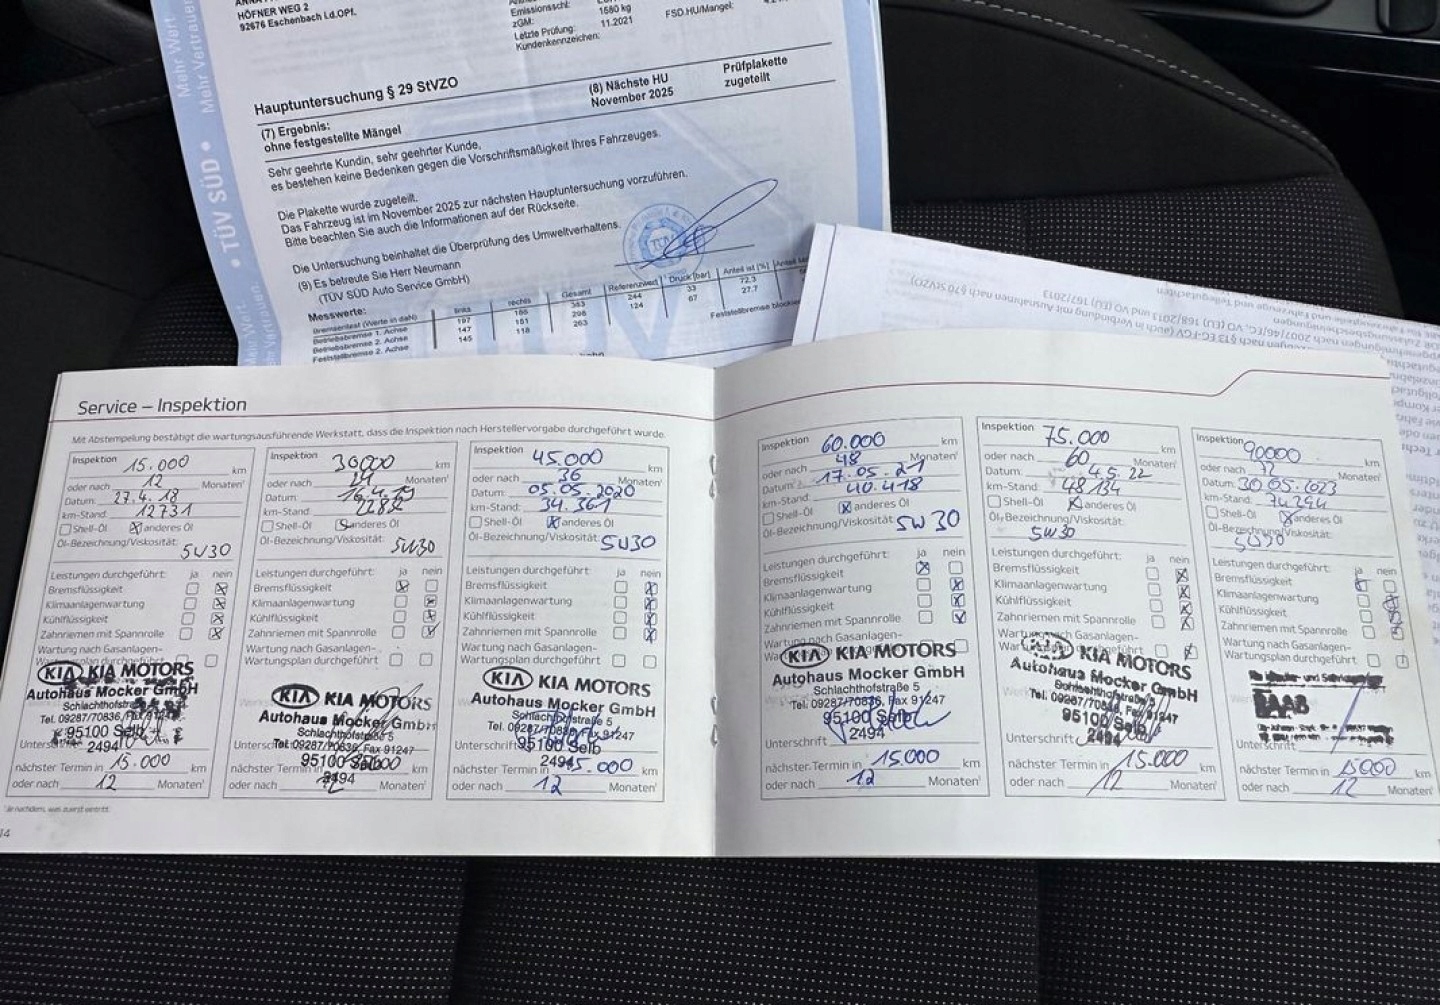 HÖFNER WEG 2
92676 Eschenbach i.d.OPf.
Emissionsschl.:
zGM: 1580 kg
Letzte Prüfung: 11.2021
Kundenkennzeichen:
FSD.HU/Mängel:
Mehr Wert
Mehr Vertrauen
• TÜV SÜD •
Hauptuntersuchung § 29 StVZO
(8) Nächste HU
November 2025
Prüfplakette
zugeteilt
(7) Ergebnis:
ohne festgestellte Mängel
Sehr geehrte Kundin, sehr geehrter Kunde,
es bestehen keine Bedenken gegen die Vorschriftsmäßigkeit Ihres Fahrzeuges.
Die Plakette wurde zugeteilt.
Das Fahrzeug ist im November 2025 zur nächsten Hauptuntersuchung vorzuführen.
Bitte beachten Sie auch die Informationen auf der Rückseite.
Die Untersuchung beinhaltet die Überprüfung des Umweltverhaltens.
(9) Es betreute Sie Herr Neumann
(TÜV SÜD Auto Service GmbH)
Messwerte:
links rechts Gesamt Referenzwert Druck [bar] Anteil ist [%]
Bremsentest (Werte in daN)
Betriebsbremse 1. Achse 197 186 383 244 33 72.3
Betriebsbremse 2. Achse 147 151 298 124 67 27.7
Feststellbremse 2. Achse 145 118 263
Service – Inspektion
Mit Abstempelung bestätigt die wartungsausführende Werkstatt, dass die Inspektion nach Herstellervorgabe durchgeführt wurde.
Inspektion 15.000 km
oder nach 12 Monaten¹
Datum: 27.4.18
km-Stand: 12731
Shell-Öl anderes Öl
Öl-Bezeichnung/Viskosität:
5W30
Leistungen durchgeführt: ja nein
Bremsflüssigkeit
Klimaanlagenwartung
Kühlflüssigkeit
Zahnriemen mit Spannrolle
Wartung nach Gasanlagen-
Wartungsplan durchgeführt
KIA KIA MOTORS
Autohaus Mocker GmbH
Schlachthofstraße 5
Tel. 09287/70836, Fax 91247
95100 Selb
2494
Unterschrift
nächster Termin in 15.000 km
oder nach 12 Monaten¹
Inspektion 30000 km
oder nach 24 Monaten¹
Datum:
km-Stand: 22832
Shell-Öl anderes Öl
Öl-Bezeichnung/Viskosität:
5W30
Leistungen durchgeführt: ja nein
Bremsflüssigkeit
Klimaanlagenwartung
Kühlflüssigkeit
Zahnriemen mit Spannrolle
Wartung nach Gasanlagen-
Wartungsplan durchgeführt
KIA KIA MOTORS
Autohaus Mocker GmbH
Schlachthofstraße 5
Tel. 09287/70836, Fax 91247
95100 Selb
2494
nächster Termin in km
oder nach 12 Monaten¹
Inspektion 45.000 km
oder nach 36 Monaten¹
Datum: 05.05.2020
km-Stand: 34.361
Shell-Öl anderes Öl
Öl-Bezeichnung/Viskosität:
5W30
Leistungen durchgeführt: ja nein
Bremsflüssigkeit
Klimaanlagenwartung
Kühlflüssigkeit
Zahnriemen mit Spannrolle
Wartung nach Gasanlagen-
Wartungsplan durchgeführt
KIA KIA MOTORS
Autohaus Mocker GmbH
Schlachthofstraße 5
Tel. 09287/70836, Fax 91247
95100 Selb
2494
Unterschrift
nächster Termin in 15.000 km
oder nach 12 Monaten¹
¹Je nachdem, was zuerst eintritt.
14
Inspektion 60.000 km
oder nach 48 Monaten¹
Datum: 17.05.21
km-Stand: 40.418
Shell-Öl anderes Öl
Öl-Bezeichnung/Viskosität: 5W30
Leistungen durchgeführt: ja nein
Bremsflüssigkeit
Klimaanlagenwartung
Kühlflüssigkeit
Zahnriemen mit Spannrolle
Wartung nach Gasanlagen-
KIA KIA MOTORS
Autohaus Mocker GmbH
Schlachthofstraße 5
Tel. 09287/70836, Fax 91247
95100 Selb
2494
Unterschrift
nächster Termin in 15.000 km
oder nach 12 Monaten¹
Inspektion 75.000 km
oder nach 60 Monaten¹
Datum: 4.5.22
km-Stand: 48134
Shell-Öl anderes Öl
Öl-Bezeichnung/Viskosität:
5W30
Leistungen durchgeführt: ja nein
Bremsflüssigkeit
Klimaanlagenwartung
Kühlflüssigkeit
Zahnriemen mit Spannrolle
Wartung nach Gasanlagen-
KIA MOTORS
Autohaus Mocker GmbH
Schlachthofstraße 5
Tel. 09287/70836, Fax 91247
95100 Selb
2494
Unterschrift
nächster Termin in 15.000 km
oder nach 12 Monaten¹
Inspektion 90000 km
oder nach 72 Monaten¹
Datum: 30.05.2023
km-Stand: 74294
Shell-Öl anderes Öl
Öl-Bezeichnung/Viskosität:
5W30
Leistungen durchgeführt: ja nein
Bremsflüssigkeit
Klimaanlagenwartung
Kühlflüssigkeit
Zahnriemen mit Spannrolle
Wartung nach Gasanlagen-
Wartungsplan durchgeführt
Unterschrift
nächster Termin in 15000 km
oder nach 12 Monaten¹